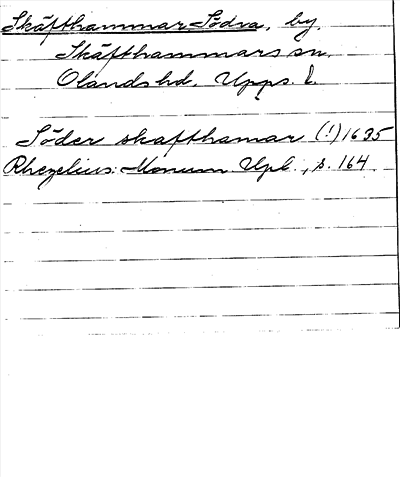 Skäfthammar Södra, by,
Skäfthammars sn,
Olands hd, Upps. l.
Söder skafthamar (!) 1635
Rhezelius: Monum. Upl., s. 164